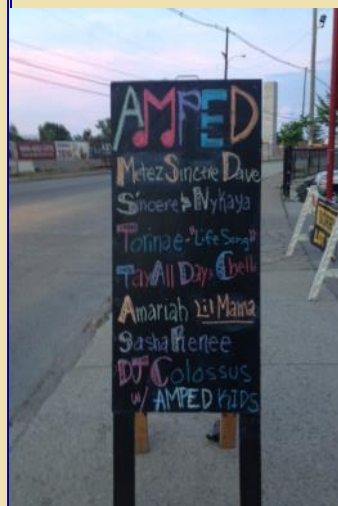 AMPED
Metez Sincere Dave
Sincere & Nykaya
Torinae - "Life Song"
TayAll Day & Chell
Amariah Lil Mama
Sasha Renee
DJ Colossus
w/ AMPED KIDS